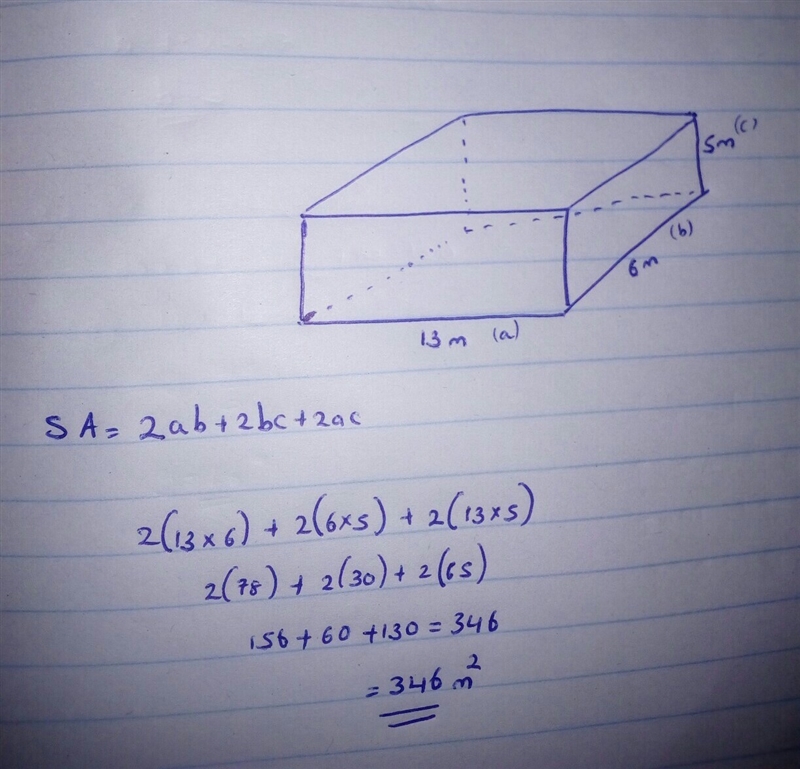 5m (c)
6m (b)
13m (a)
SA = 2ab + 2bc + 2ac
2(13 × 6) + 2(6×5) + 2(13×5)
2(78) + 2(30) + 2(65)
156 + 60 + 130 = 346
= 346 m²